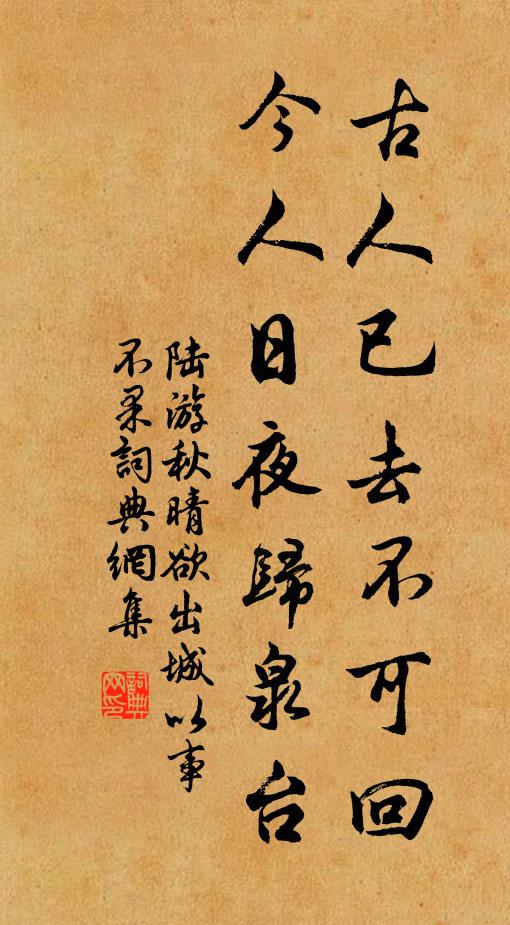 古人已去不可回
今人日夜歸泉台
陆游秋晴欲出城以事
不果詞典網集
詞典網印